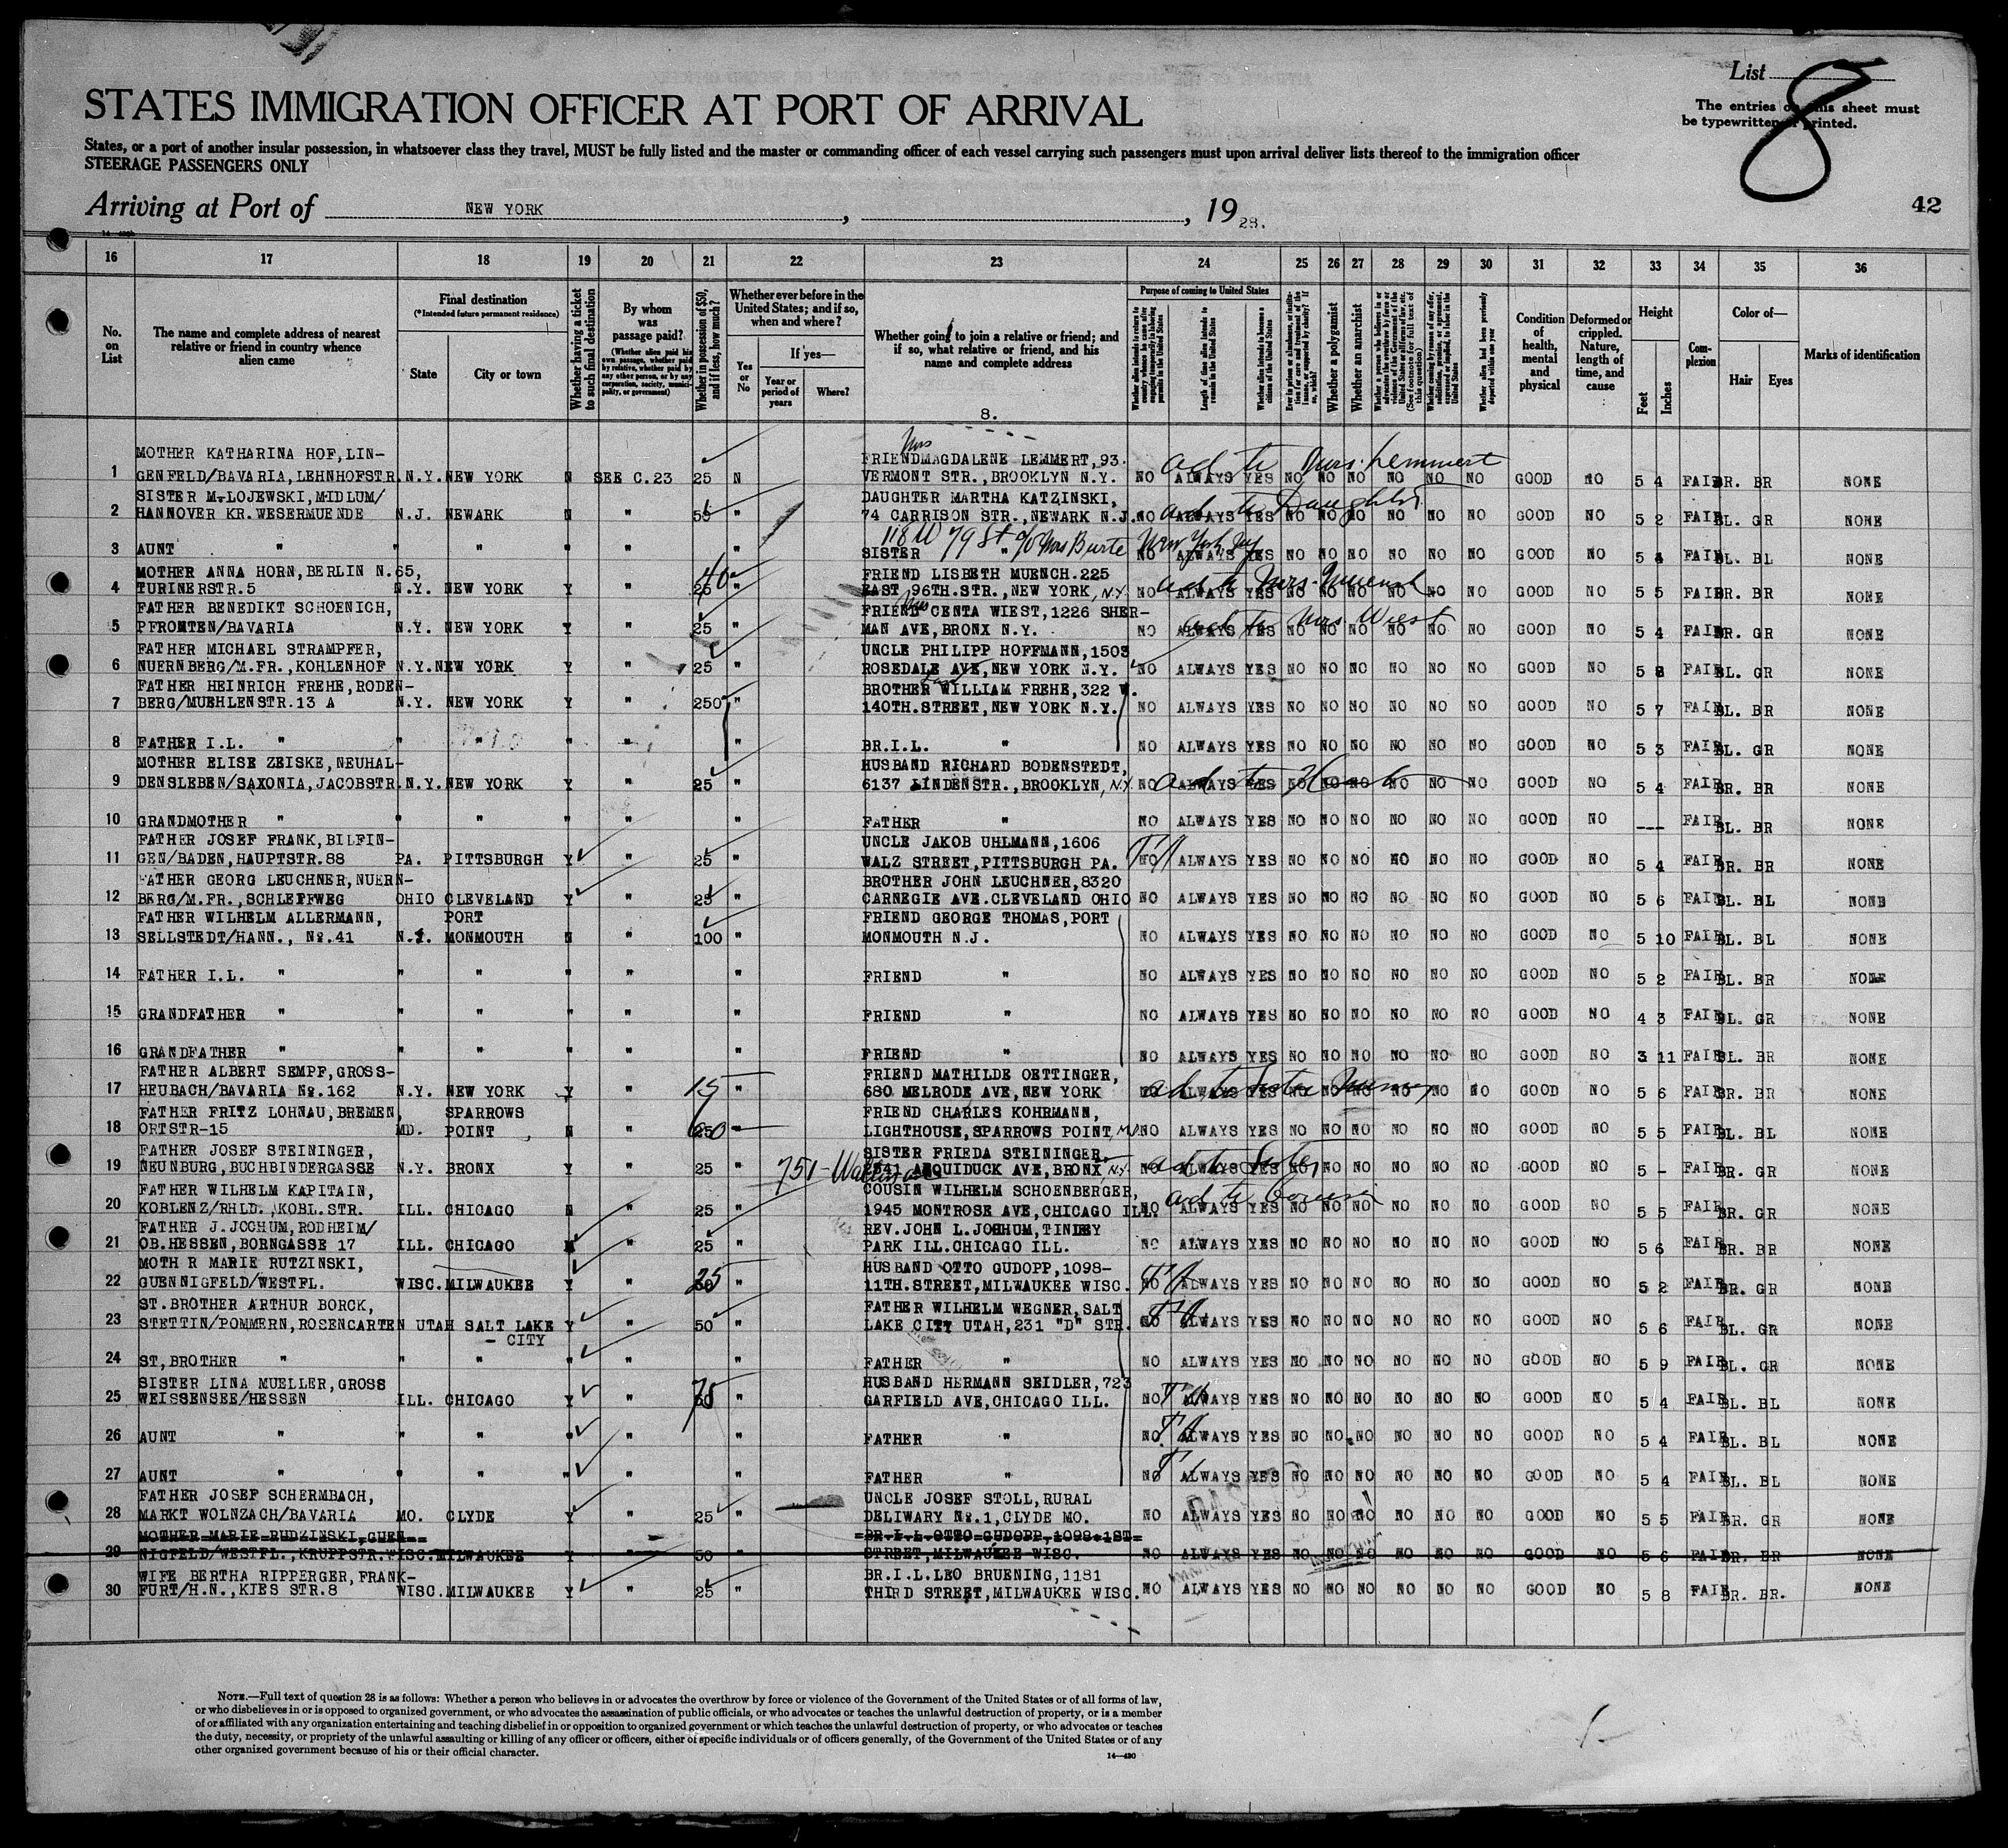 List
8
The entries on this sheet must
be typewritten or printed.
STATES IMMIGRATION OFFICER AT PORT OF ARRIVAL
States, or a port of another insular possession, in whatsoever class they travel, MUST be fully listed and the master or commanding officer of each vessel carrying such passengers must upon arrival deliver lists thereof to the immigration officer
STEERAGE PASSENGERS ONLY
Arriving at Port of NEW YORK, , 1928.
42
16 17 18 19 20 21 22 23 24 25 26 27 28 29 30 31 32 33 34 35 36
No. on List
The name and complete address of nearest relative or friend in country whence alien came
Final destination
(*Intended future permanent residence)
State
City or town
Whether having a ticket to such final destination
By whom was passage paid?
(Whether alien paid his own passage, whether paid by relative, whether paid by any other person, or by any corporation, society, municipality, or government)
Whether in possession of $50, and if less, how much?
Whether ever before in the United States; and if so, when and where?
Yes or No
If yes—
Year or period of years
Where?
Whether going to join a relative or friend; and if so, what relative or friend, and his name and complete address
8.
Purpose of coming to United States
Length of time alien intends to remain in the United States
Whether alien intends to become a citizen of the United States
Whether a polygamist
Whether an anarchist
(See footnote for full text of this question)
Whether alien had been previously deported within one year
Condition of health, mental and physical
Deformed or crippled. Nature, length of time, and cause
Height
Feet
Inches
Complexion
Color of—
Hair
Eyes
Marks of identification
MOTHER KATHARINA HOF, LIN- Mrs
1 GENFELD/BAVARIA, LEHNHOFSTR. N.Y. NEW YORK N SEE C.23 25 N FRIEND MAGDALENE LEMMERT, 93. VERMONT STR., BROOKLYN N.Y. NO ALWAYS YES NO NO NO NO NO NO GOOD NO 5 4 FAIR BR. BR NONE
ad to Mrs. Lemmert
SISTER M.LOJEWSKI, MIDLUM/ DAUGHTER MARTHA KATZINSKI,
2 HANNOVER KR. WESERMUENDE N.J. NEWARK N " " 74 CARRISON STR., NEWARK N.J. NO ALWAYS YES NO NO NO NO NO NO GOOD NO 5 2 FAIR BL. GR NONE
ad to Daughter
118 W 79 St c/o Mrs Burte New York Ny
3 AUNT " " " " " " SISTER " NO ALWAYS YES NO NO NO NO NO NO GOOD NO 5 4 FAIR BL. BL NONE
MOTHER ANNA HORN, BERLIN N.65, 40 FRIEND LISBETH MUENCH. 225
4 TURINERSTR.5 N.Y. NEW YORK Y " 25 " EAST 96TH.STR., NEW YORK, N.Y. NO ALWAYS YES NO NO NO NO NO NO GOOD NO 5 5 FAIR BR. BR NONE
ad to Mrs. Muench
FATHER BENEDIKT SCHOENICH, FRIEND Mrs CENTA WIEST, 1226 SHER-
5 PFRONTEN/BAVARIA N.Y. NEW YORK Y " 25 " MAN AVE, BRONX N.Y. NO ALWAYS YES NO NO NO NO NO NO GOOD NO 5 4 FAIR BR. GR NONE
ad to Mrs. Wiest
FATHER MICHAEL STRAMPFER, UNCLE PHILIPP HOFFMANN, 1503
6 NUERNBERG/M.FR., KOHLENHOF N.Y. NEW YORK Y " 25 " ROSEDALE AVE, NEW YORK N.Y. NO ALWAYS YES NO NO NO NO NO NO GOOD NO 5 8 FAIR BL. GR NONE
FATHER HEINRICH FREHE, RODEN- BROTHER WILLIAM FREHE, 322 W.
7 BERG/MUEHLENSTR.13 A N.Y. NEW YORK Y " 250 " 140TH.STREET, NEW YORK N.Y. NO ALWAYS YES NO NO NO NO NO NO GOOD NO 5 7 FAIR BL. BR NONE
8 FATHER I.L. " " " " " " BR.I.L. " NO ALWAYS YES NO NO NO NO NO NO GOOD NO 5 3 FAIR BL. GR NONE
MOTHER ELISE ZEISKE, NEUHAL- HUSBAND RICHARD BODENSTEDT,
9 DENSLEBEN/SAXONIA, JACOBSTR. N.Y. NEW YORK Y " 25 " 6137 LINDENSTR., BROOKLYN, N.Y. NO ALWAYS YES NO NO NO NO NO NO GOOD NO 5 4 FAIR BR. BR NONE
10 GRANDMOTHER " " " " " " FATHER " NO ALWAYS YES NO NO NO NO NO NO GOOD NO --- FAIR BL. BR NONE
FATHER JOSEF FRANK, BILFIN- UNCLE JAKOB UHLMANN, 1606
11 GEN/BADEN, HAUPTSTR.88 PA. PITTSBURGH Y " 25 " WALZ STREET, PITTSBURGH PA. NO ALWAYS YES NO NO NO NO NO NO GOOD NO 5 4 FAIR BR. BR NONE
FATHER GEORG LEUCHNER, NUERN- BROTHER JOHN LEUCHNER, 8320
12 BERG/M.FR., SCHLEIFWEG OHIO CLEVELAND Y " 25 " CARNEGIE AVE. CLEVELAND OHIO NO ALWAYS YES NO NO NO NO NO NO GOOD NO 5 6 FAIR BL. BL NONE
FATHER WILHELM ALLERMANN, PORT FRIEND GEORGE THOMAS, PORT
13 SELLSTEDT/HANN., No.41 N.J. MONMOUTH N " 100 " MONMOUTH N.J. NO ALWAYS YES NO NO NO NO NO NO GOOD NO 5 10 FAIR BL. BL NONE
14 FATHER I.L. " " " " " " FRIEND " NO ALWAYS YES NO NO NO NO NO NO GOOD NO 5 2 FAIR BL. BR NONE
15 GRANDFATHER " " " " " " FRIEND " NO ALWAYS YES NO NO NO NO NO NO GOOD NO 4 3 FAIR BL. GR NONE
16 GRANDFATHER " " " " " " FRIEND " NO ALWAYS YES NO NO NO NO NO NO GOOD NO 3 11 FAIR BL. BR NONE
FATHER ALBERT SEMPF, GROSS- FRIEND MATHILDE OETTINGER,
17 HEUBACH/BAVARIA No.162 N.Y. NEW YORK Y " 15 " 680 MELRODE AVE, NEW YORK NO ALWAYS YES NO NO NO NO NO NO GOOD NO 5 6 FAIR BR. BR NONE
FATHER FRITZ LOHNAU, BREMEN, SPARROWS FRIEND CHARLES KOHRMANN,
18 ORTSTR-15 MD. POINT N " 60 " LIGHTHOUSE, SPARROWS POINT, Md. NO ALWAYS YES NO NO NO NO NO NO GOOD NO 5 5 FAIR BL. BL NONE
FATHER JOSEF STEININGER, SISTER FRIEDA STEININGER,
19 NEUNBURG, BUCHBINDERGASSE N.Y. BRONX Y " 25 " 2541 AEQUIDUCK AVE, BRONX N.Y. NO ALWAYS YES NO NO NO NO NO NO GOOD NO 5 - FAIR BR. GR NONE
751 - ad to Sister
FATHER WILHELM KAPITAIN, COUSIN WILHELM SCHOENBERGER,
20 KOBLENZ/RHLD., KOBL.STR. ILL. CHICAGO N " 25 " 1945 MONTROSE AVE, CHICAGO ILL. NO ALWAYS YES NO NO NO NO NO NO GOOD NO 5 5 FAIR BR. GR NONE
ad to Cousin
FATHER J.JOCHUM, RODHEIM/ REV. JOHN L.JOCHUM, TINLEY
21 OB.HESSEN, BORNGASSE 17 ILL. CHICAGO N " 25 " PARK ILL. CHICAGO ILL. NO ALWAYS YES NO NO NO NO NO NO GOOD NO 5 6 FAIR BR. BR NONE
MOTH R MARIE RUTZINSKI, HUSBAND OTTO GUDOPP, 1098-
22 GUENNIGFELD/WESTFL. WISC. MILWAUKEE Y " 25 " 11TH.STREET, MILWAUKEE WISC. NO ALWAYS YES NO NO NO NO NO NO GOOD NO 5 2 FAIR BR. GR NONE
ST.BROTHER ARTHUR BORCK, FATHER WILHELM WEGNER, SALT
23 STETTIN/POMMERN, ROSENGARTEN UTAH SALT LAKE Y " 50 " LAKE CITY UTAH, 231 "D" STR. NO ALWAYS YES NO NO NO NO NO NO GOOD NO 5 6 FAIR BL. GR NONE
- CITY
24 ST, BROTHER " " " " " " FATHER " NO ALWAYS YES NO NO NO NO NO NO GOOD NO 5 9 FAIR BL. GR NONE
SISTER LINA MUELLER, GROSS HUSBAND HERMANN SEIDLER, 723
25 WEISSENSEE/HESSEN ILL. CHICAGO Y " 75 " GARFIELD AVE, CHICAGO ILL. NO ALWAYS YES NO NO NO NO NO NO GOOD NO 5 4 FAIR BL. BL NONE
26 AUNT " " " " " " FATHER " NO ALWAYS YES NO NO NO NO NO NO GOOD NO 5 4 FAIR BL. BL NONE
27 AUNT " " " " " " FATHER " NO ALWAYS YES NO NO NO NO NO NO GOOD NO 5 4 FAIR BL. BL NONE
FATHER JOSEF SCHERMBACH, UNCLE JOSEF STOLL, RURAL
28 MARKT WOLNZACH/BAVARIA MO. CLYDE Y " 25 " DELIWARY No.1, CLYDE MO. NO ALWAYS YES NO NO NO NO NO NO GOOD NO 5 5 FAIR BR. GR NONE
MOTHER MARIE RUDZINSKI, GUEN- BR.I.L. OTTO GUDOPP, 1098-1ST
29 NIGFELD/WESTFL., KRUPPSTR. WISC. MILWAUKEE Y " 50 " STREET, MILWAUKEE WISC. NO ALWAYS YES NO NO NO NO NO NO GOOD NO 5 6 FAIR BR. BR NONE
WIFE BERTHA RIPPERGER, FRANK- BR.I.L. LEO BRUENING, 1181
30 FURT/H.N., KIES STR.8 WISC. MILWAUKEE Y " 25 " THIRD STREET, MILWAUKEE WISC. NO ALWAYS YES NO NO NO NO NO NO GOOD NO 5 8 FAIR BR. BR. NONE
NOTE.—Full text of question 28 is as follows: Whether a person who believes in or advocates the overthrow by force or violence of the Government of the United States or of all forms of law,
or who disbelieves in or is opposed to organized government, or who advocates the assassination of public officials, or who advocates or teaches the unlawful destruction of property, or is a member
of or affiliated with any organization entertaining and teaching disbelief in or opposition to organized government or which teaches the unlawful destruction of property, or who advocates or teaches
the duty, necessity, or propriety of the unlawful assaulting or killing of any officer or officers, either of specific individuals or of officers generally, of the Government of the United States or of any
other organized government because of his or their official character.
14—430